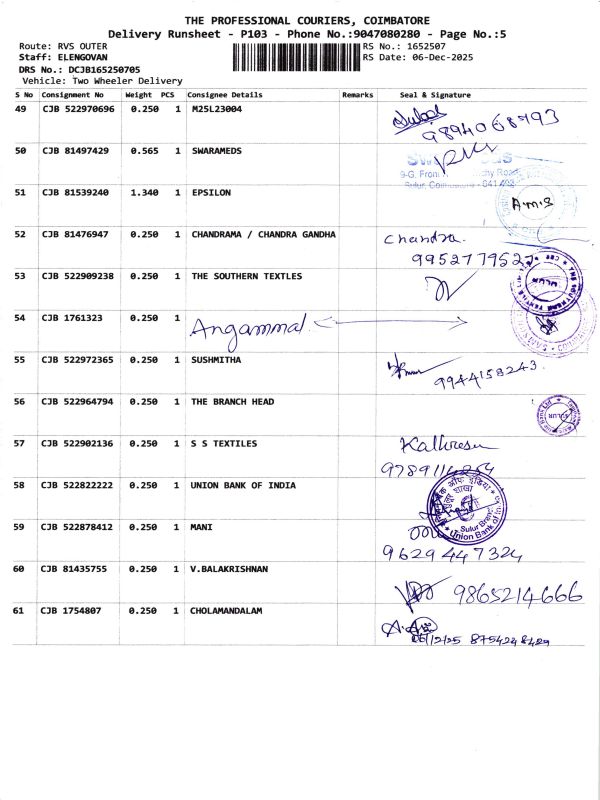 THE PROFESSIONAL COURIERS, COIMBATORE
Delivery Runsheet - P103 - Phone No.:9047080280 - Page No.:5
Route: RVS OUTER RS No.: 1652507
Staff: ELENGOVAN RS Date: 06-Dec-2025
DRS No.: DCJB165250705
Vehicle: Two Wheeler Delivery
S No Consignment No Weight PCS Consignee Details Remarks Seal & Signature
49 CJB 522970696 0.250 1 M25L23004
9894068793
50 CJB 81497429 0.565 1 SWARAMEDS
Sulur, Coimbatore - 641 402
51 CJB 81539240 1.340 1 EPSILON
A.M.S
52 CJB 81476947 0.250 1 CHANDRAMA / CHANDRA GANDHA Chandra.
9952779527
53 CJB 522909238 0.250 1 THE SOUTHERN TEXTLES
54 CJB 1761323 0.250 1 Angammal
55 CJB 522972365 0.250 1 SUSHMITHA
9944158243
56 CJB 522964794 0.250 1 THE BRANCH HEAD
SULUR
57 CJB 522902136 0.250 1 S S TEXTILES Kathiresu
58 CJB 522822222 0.250 1 UNION BANK OF INDIA
सुलूर शाखा
Sulur Branch
Union Bank of India
59 CJB 522878412 0.250 1 MANI
9629447324
60 CJB 81435755 0.250 1 V.BALAKRISHNAN
9865214666
61 CJB 1754807 0.250 1 CHOLAMANDALAM
06/12/25 8754248429